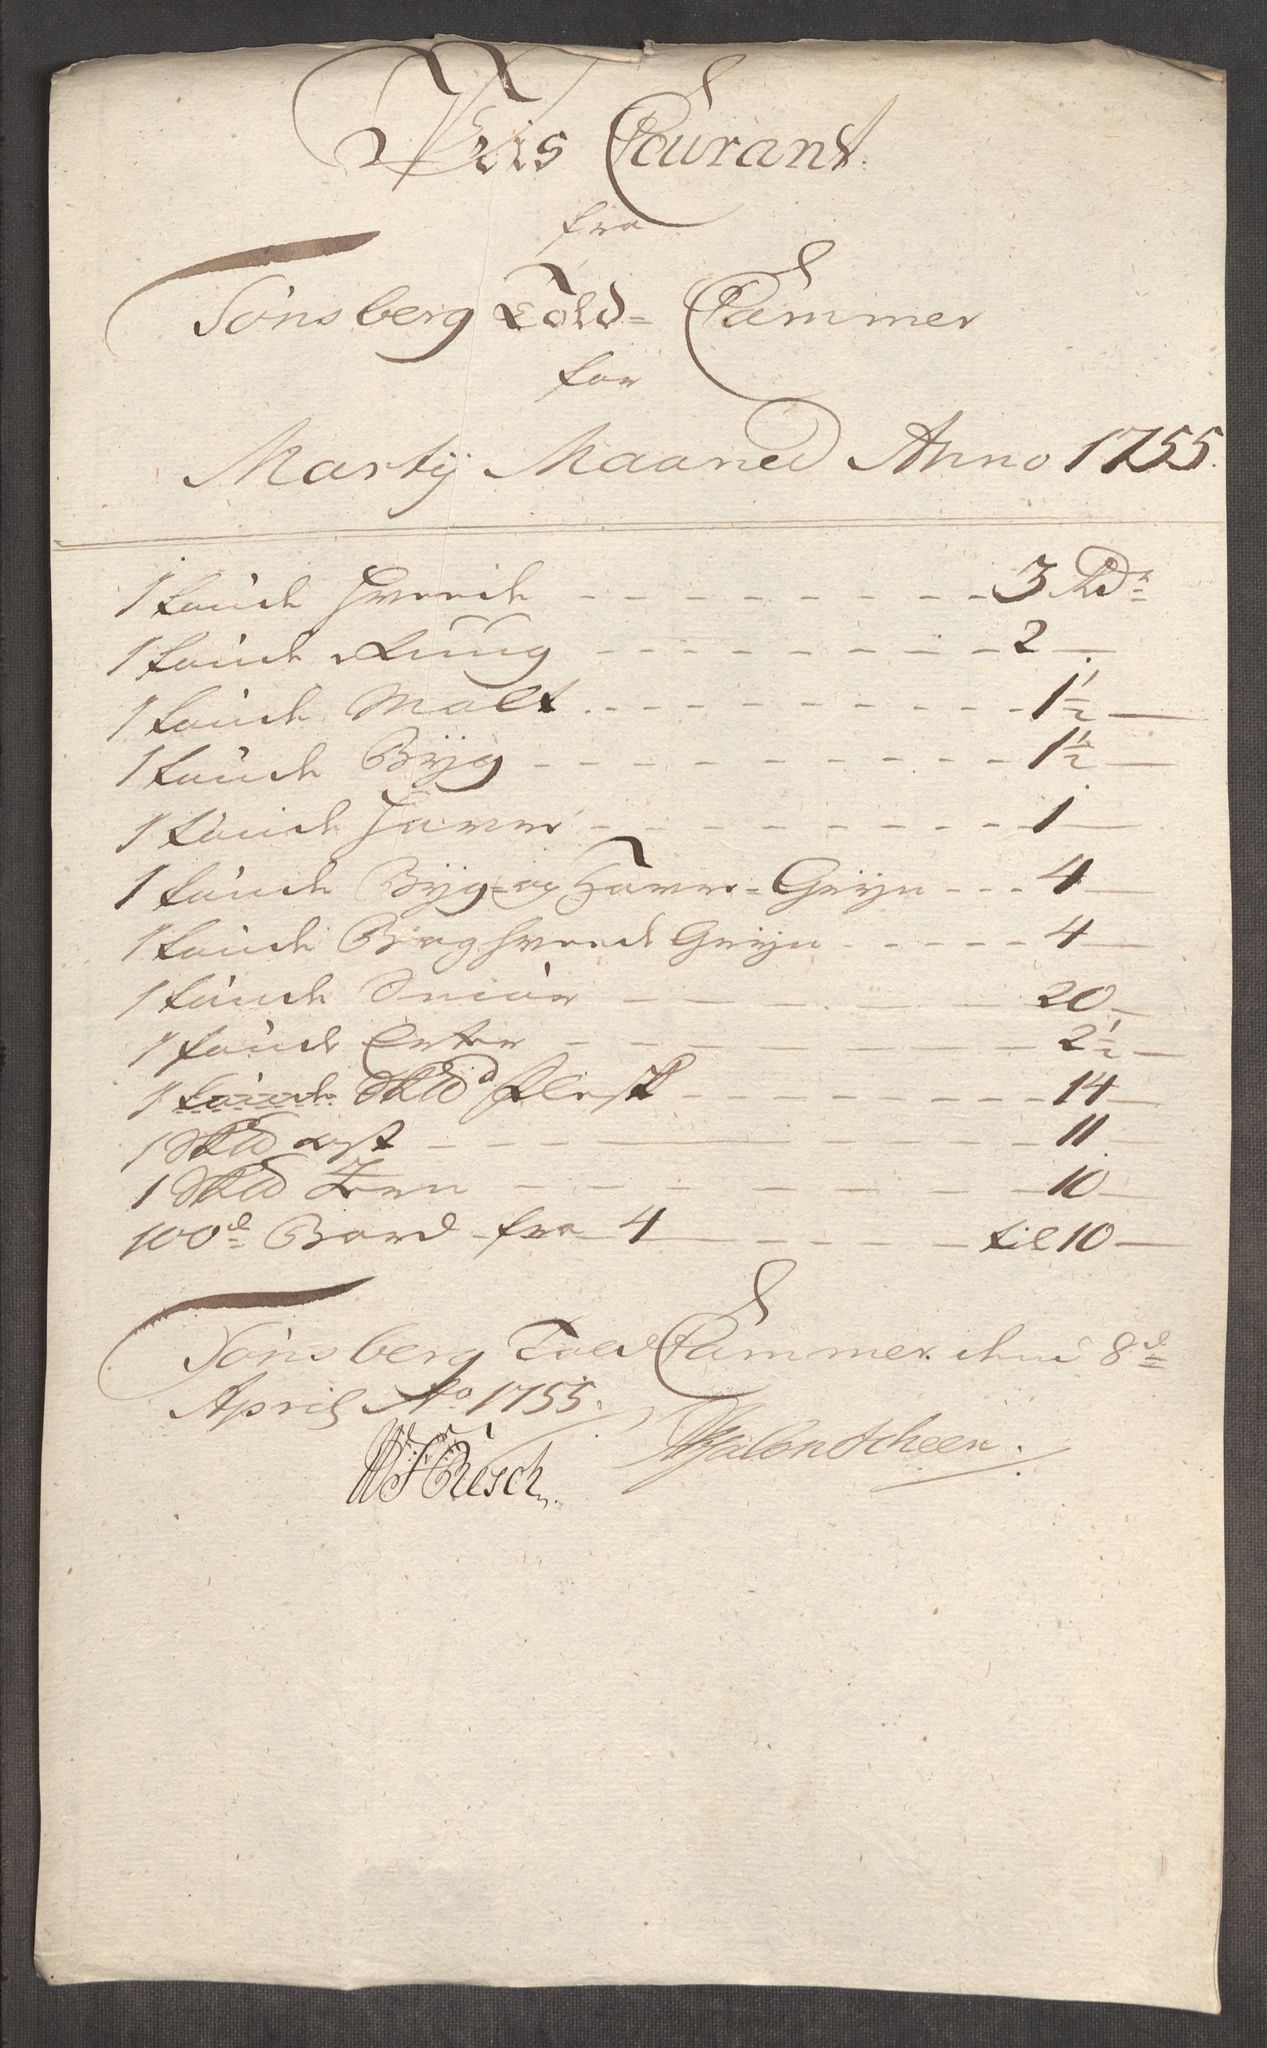 Priis Courant
fra
Tønsberg Told= Cammer
for
Martÿ Maaned Anno 1755.
1 tønde Hveede - - - - - - - - - 3 Rdr
1 tønde Ruug - - - - - - - - - 2 —
1 tønde Malt - - - - - - - - - 1½ —
1 tønde Bÿg - - - - - - - - - 1½ —
1 tønde Havre - - - - - - - - - 1 —
1 tønde Bÿg- og Havre-Grÿn - - - 4 —
1 tønde Boghveede Grÿn - - - - - 4 —
1 tønde Smiør - - - - - - - 20 —
1 tønde Erter - - - - - - - 2½ —
1 tønde Sk℔d Flesk - - - - - - - 14 —
1 Sk℔d ost - - - - - - - - 11 —
1 Sk℔d Jern - - - - - - - - 10 —
100de Bord fra 4 — - - - - til 10 —
Tønsberg Told Cammer. denn 8de
April Ao 1755.
Resch